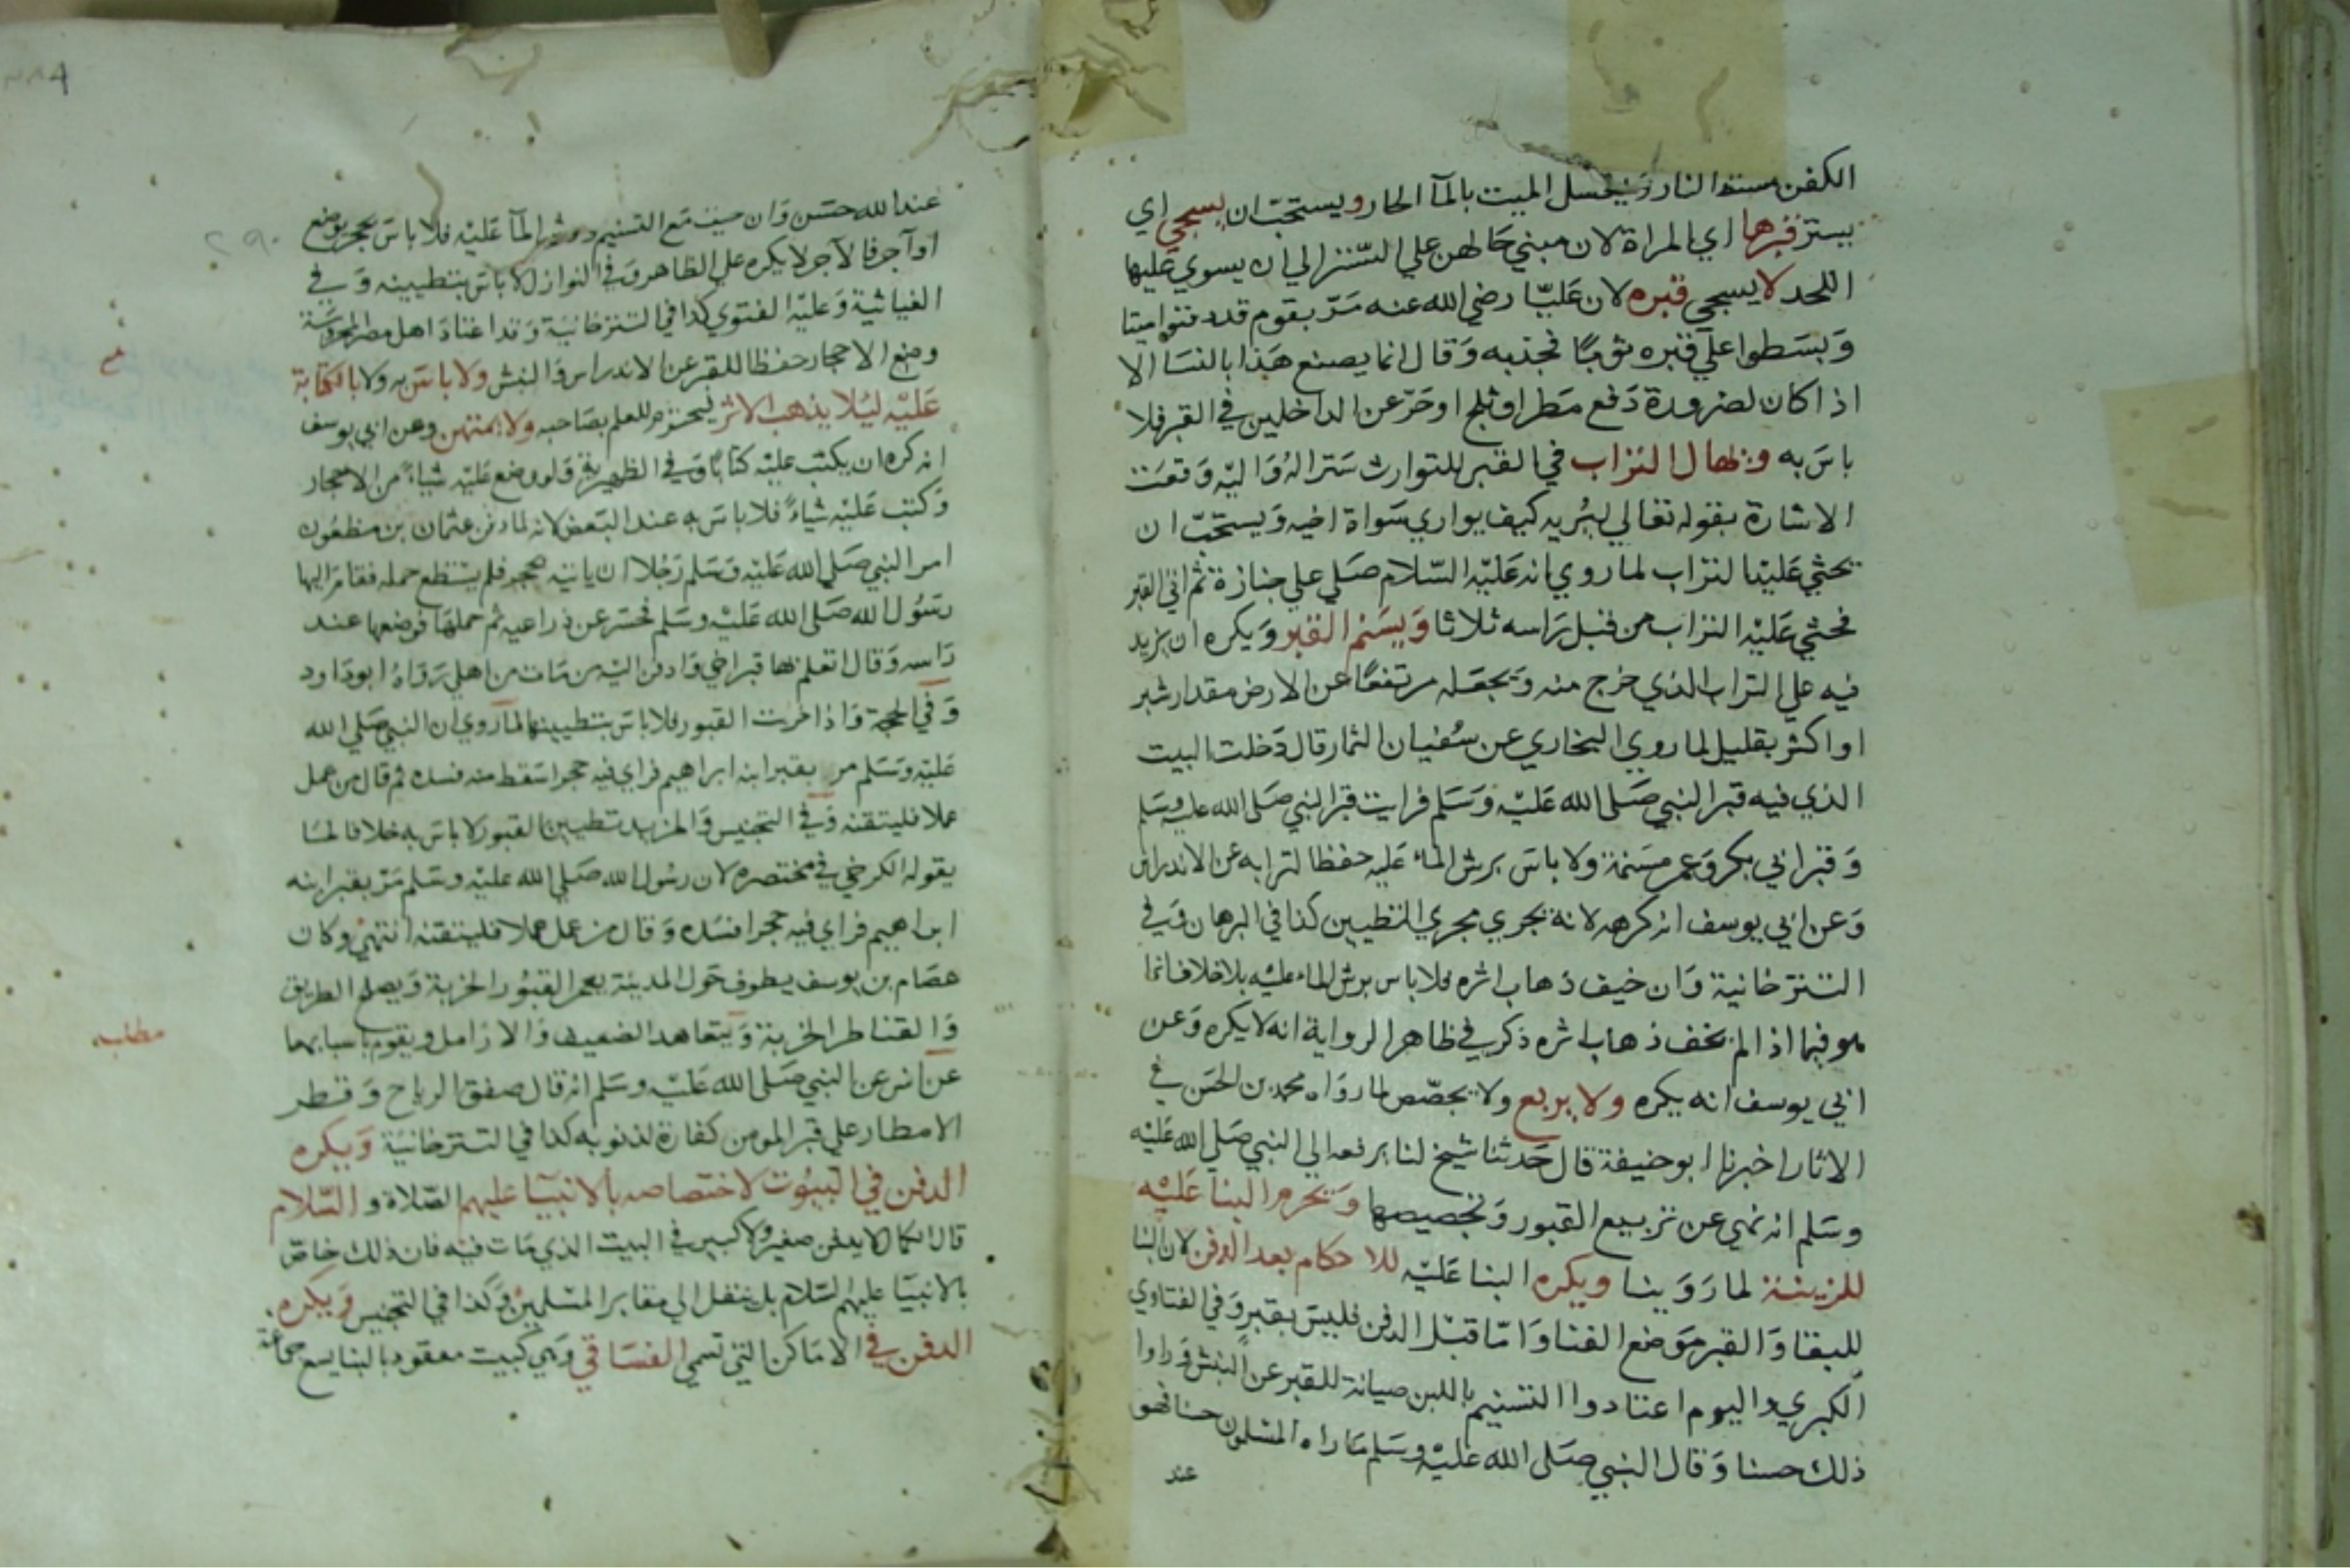 الكفن مسته النار ويغسل الميت بالمآ الحار ويستحب ان يسجي اي
يستر قبرها اي المراة لان مبني حالهن علي التستر الي ان يسوي عليها
اللحد لا يسجي قبره لان عليا رضي الله عنه مر بقوم قد دفنوا ميتا
وبسطوا علي قبره ثوبا فجذبه وقال انما يصنع هذا بالنسا الا
اذا كان لضرورة دفع مطر او ثلج او حر عن الداخلين في القبر فلا
باس به ويهال التراب في القبر للتوارث سترا له واليه وقعت
الاشارة بقوله تعالي ليريه كيف يواري سواة اخيه ويستحب ان
يحثي عليه التراب لما روي انه عليه السلام صلي علي جنازة ثم اتي القبر
فحثي عليه التراب من قبل راسه ثلاثا ويسنم القبر ويكره ان يزيد
فيه علي التراب الذي خرج منه ويجعله مرتفعا عن الارض مقدار شبر
او اكثر بقليل لما روي البخاري عن سفيان التمار قال دخلت البيت
الذي فيه قبر النبي صلي الله عليه وسلم فرايت قبر النبي صلي الله عليه وسلم
وقبر ابي بكر وعمر مسنمة ولا باس برش الماء عليه حفظا لترابه عن الاندراس
وعن ابي يوسف انه كرهه لانه يجري مجري التطيين كذا في البرهان وفي
التترخانية وان خيف ذهاب اثره فلا باس برش الماء عليه بلا خلاف انما
هو فيما اذا لم يخف ذهاب اثره ذكر في ظاهر الرواية انه لا يكره وعن
ابي يوسف انه يكره ولا يربع ولا يجصص لما رواه محمد بن الحسن في
الاثار اخبرنا ابو حنيفة قال حدثنا شيخ لنا يرفعه الي النبي صلي الله عليه
وسلم انه نهي عن تربيع القبور وتجصيصها ويحرم البنا عليه
للزينة لما روينا ويكره البنا عليه للاحكام بعد الدفن لان البنا
للبقا والقبر موضع الفنا واما قبل الدفن فليس بقبر وفي الفتاوي
الكبري واليوم اعتادوا التسنيم باللبن صيانة للقبر عن النبش وراوا
ذلك حسنا وقال النبي صلي الله عليه وسلم ما راه المسلمون حسنا فهو
عند
عند الله حسن وان خيف مع التسنيم ورش المآ عليه فلا باس بحجر يوضع
او آجر فالآجر لا يكره علي الظاهر وفي النوازل لا باس بتطيينه وفي
الغياثية وعليه الفتوي كذا في التترخانية وقد اعتاد اهل مصر المحروسة
وضع الاحجار حفظا للقبر عن الاندراس والنبش ولا باس به ولا بالكتابة
عليه ليلا يذهب الاثر ليحترم للعلم بصاحبه ولا يمتهن وعن ابي يوسف
انه كره ان يكتب عليه كتابا وفي الظهيرية ولو وضع عليه شياء من الاحجار
وكتب عليه شياء فلا باس به عند البعض لانه لما دفن عثمان بن مظعون
امر النبي صلي الله عليه وسلم رجلا ان ياتيه بحجر فلم يستطع حمله فقام اليها
رسول الله صلي الله عليه وسلم فحسر عن ذراعيه ثم حملها فوضعها عند
راسه وقال اتعلم بها قبر اخي وادفن اليه من مات من اهلي رواه ابو داود
وفي الحجة واذا خربت القبور فلا باس بتطيينها لما روي ان النبي صلي الله
عليه وسلم مر بقبر ابنه ابراهيم فراي فيه حجرا سقط منه فسده ثم قال من عمل
عملا فليتقنه وفي التجنيس والمزيد تطيين القبور لا باس به خلافا لما
يقوله الكرخي في مختصره لان رسول الله صلي الله عليه وسلم مر بقبر ابنه
ابراهيم فراي فيه حجرا فسده وقال من عمل عملا فليتقنه انتهي وكان
عصام بن يوسف يطوف حول المدينة يعمر القبور الخربة ويصلح الطريق
والقناطر الخربة ويتعاهد الضعيف والارامل ويقوم باسبابهما
عن انس عن النبي صلي الله عليه وسلم انه قال صفق الرياح وقطر
الامطار علي قبر المومن كفارة لذنوبه كذا في التترخانية ويكره
الدفن في البيوت لاختصاصه بالانبيا عليهم الصلاة والسلام
قال الكمال لا يدفن صغير ولا كبير في البيت الذي مات فيه فان ذلك خاص
بالانبيا عليهم السلام بل ينقل الي مقابر المسلمين وكذا في التجنيس ويكره
الدفن في الاماكن التي تسمي الفساقي وهي كبيت معقود بالبنا يسع جماعة
مطلب